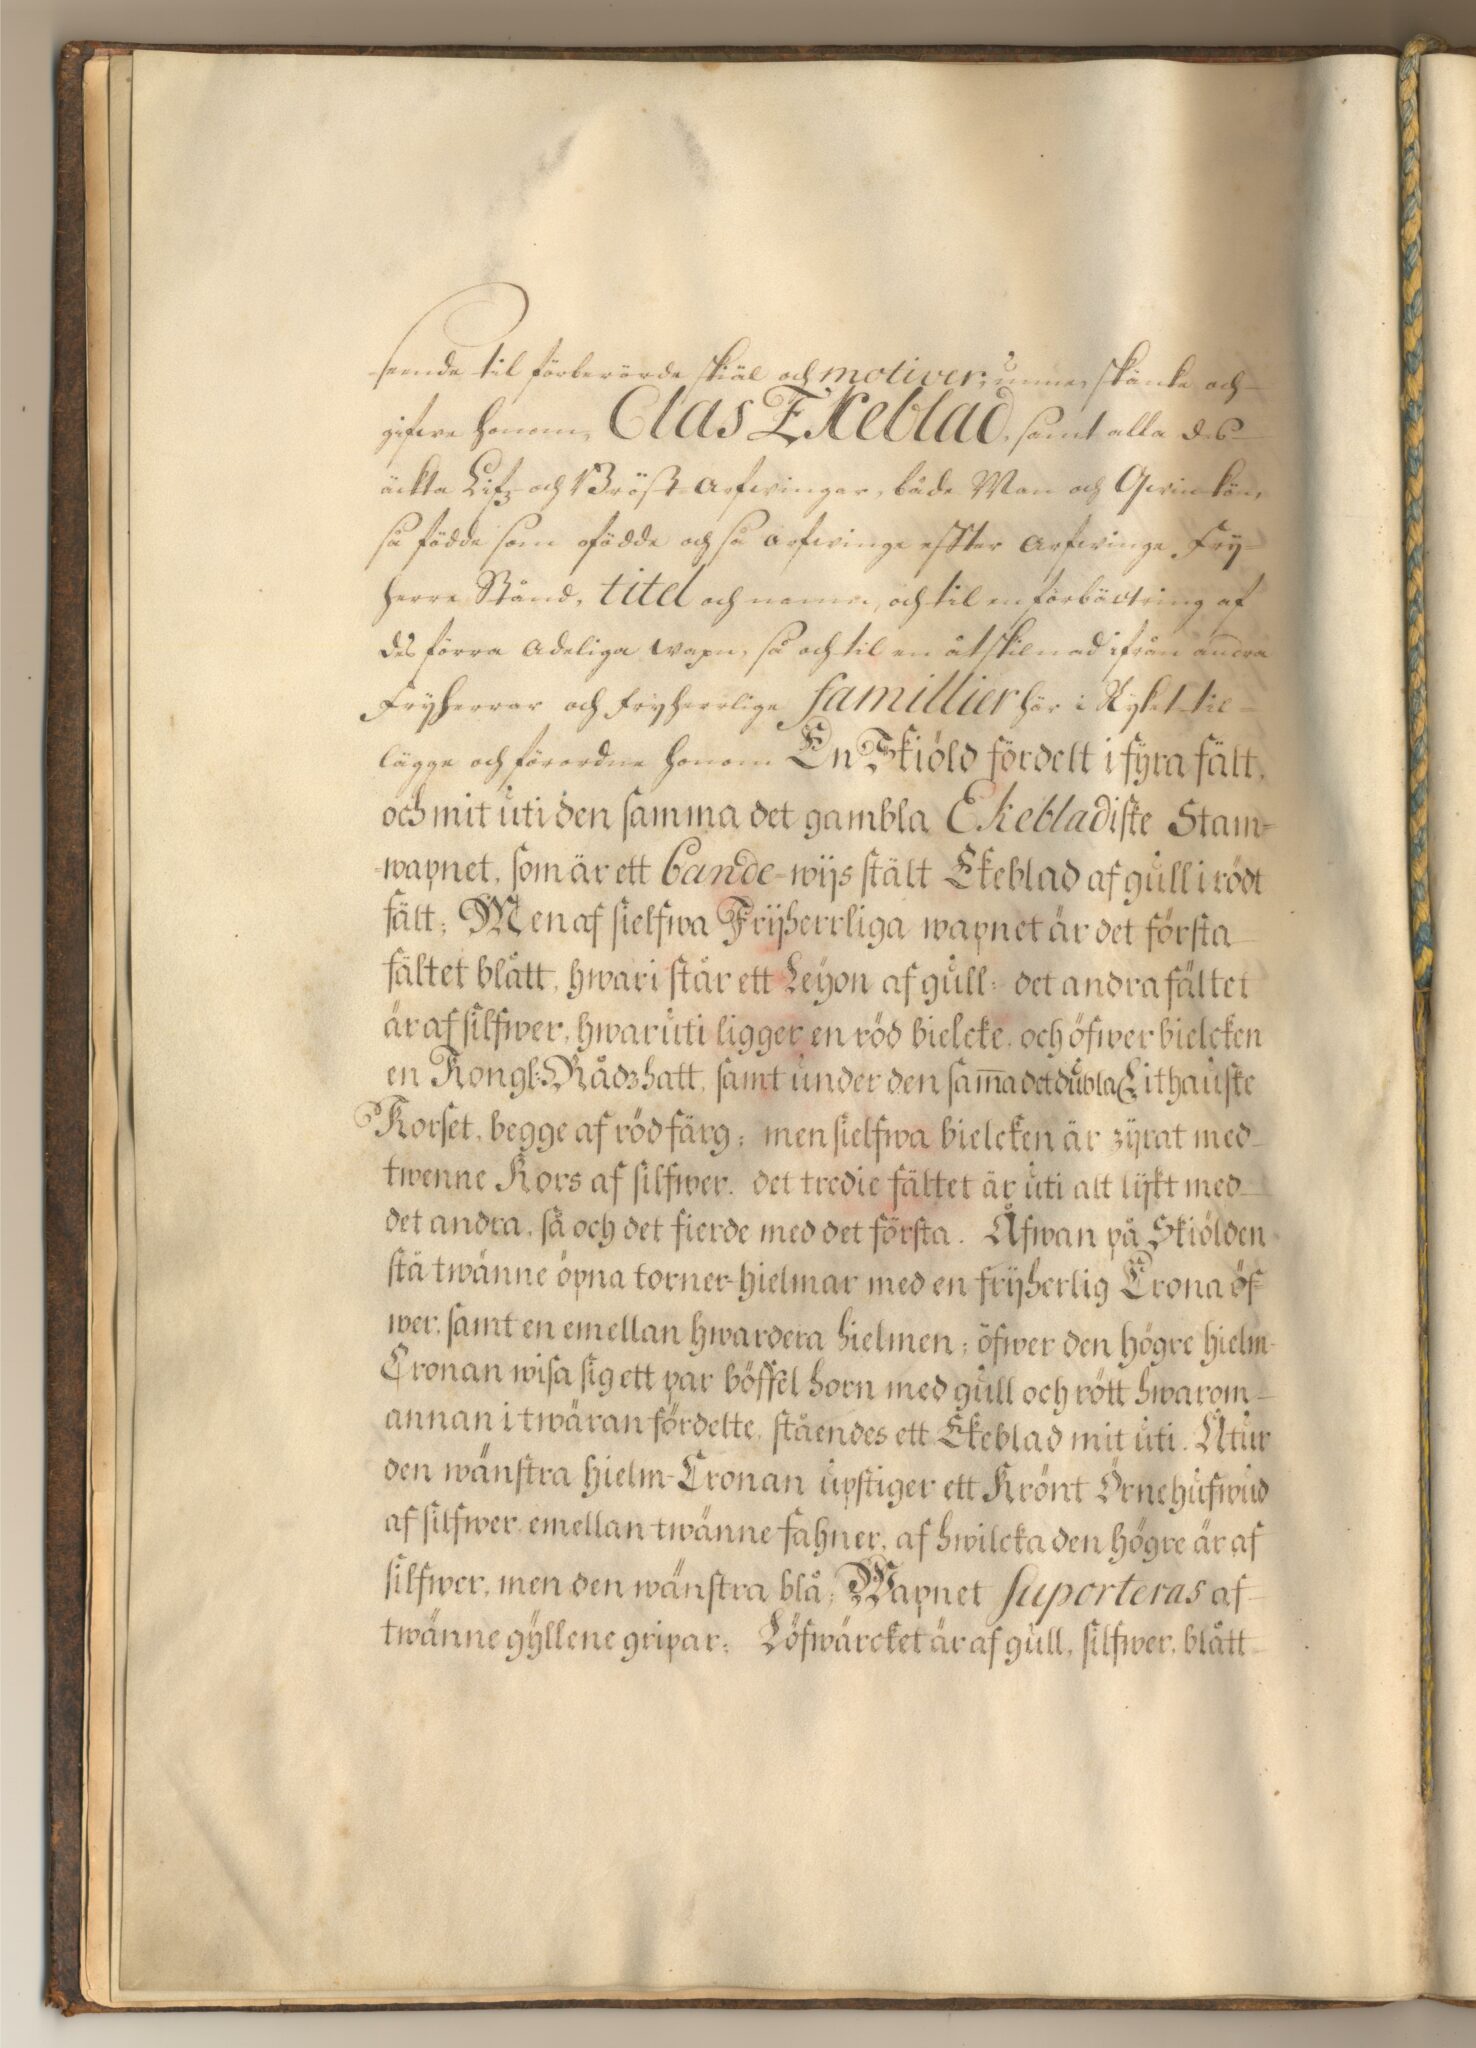 seende til förberörde skiäl och motiver, unne, skänke och
gifwe honom, Clas Ekeblad, samt alla des
äckta Lifz- och Bröst-Arfwingar, både Man och Qwinkön,
så födde som ofödde och så arfwinge effter arfwinge Fry-
herre Stånd, titel och namn, och til en förbättring af
des förra Adeliga wapn, så och til en åtskilnad ifrån andra
Fryherrar och Fryherrlige famillier här i Ryket til-
lägge och förordne honom En Skiöld fördelt i fyra fält,
och mit uti den samma det gambla Ekebladiske Stam-
wapnet, som är ett bande-wijs stält Ekeblad af gull i rödt
fält; Men af sielfwa Frijherrliga wapnet är det första
fältet blått, hwari står ett Leyon af gull: det andra fältet
är af silfwer, hwaruti ligger en röd bielcke, och öfwer bielcken
en Kongl: Rådzhatt, samt under den sam̅a det dubla Lithauske
Korset, begge af röd färg; men sielfwa bielcken är zyrat med
twenne Kors af silfwer. det tredie fältet är uti alt lijkt med
det andra, så och det fierde med det första. Åfwan på Skiölden
stå twänne öpna torner-hielmar med en frijherlig Crona öf-
wer, samt en emellan hwardera hielmen; öfwer den högre hielm-
Cronan wisa sig ett par böffel horn med gull och rött hwarom
annan i twäran fördelte, ståendes ett Ekeblad mit uti. Utur
den wänstra hielm-Cronan upstiger ett Krönt Örnehufwud
af silfwer, emellan twänne fahner, af hwilcka den högre är af
silfwer, men den wänstra blå; Wapnet suporteras af
twänne gyllene gripar; Löfwärcket är af gull, silfwer, blått